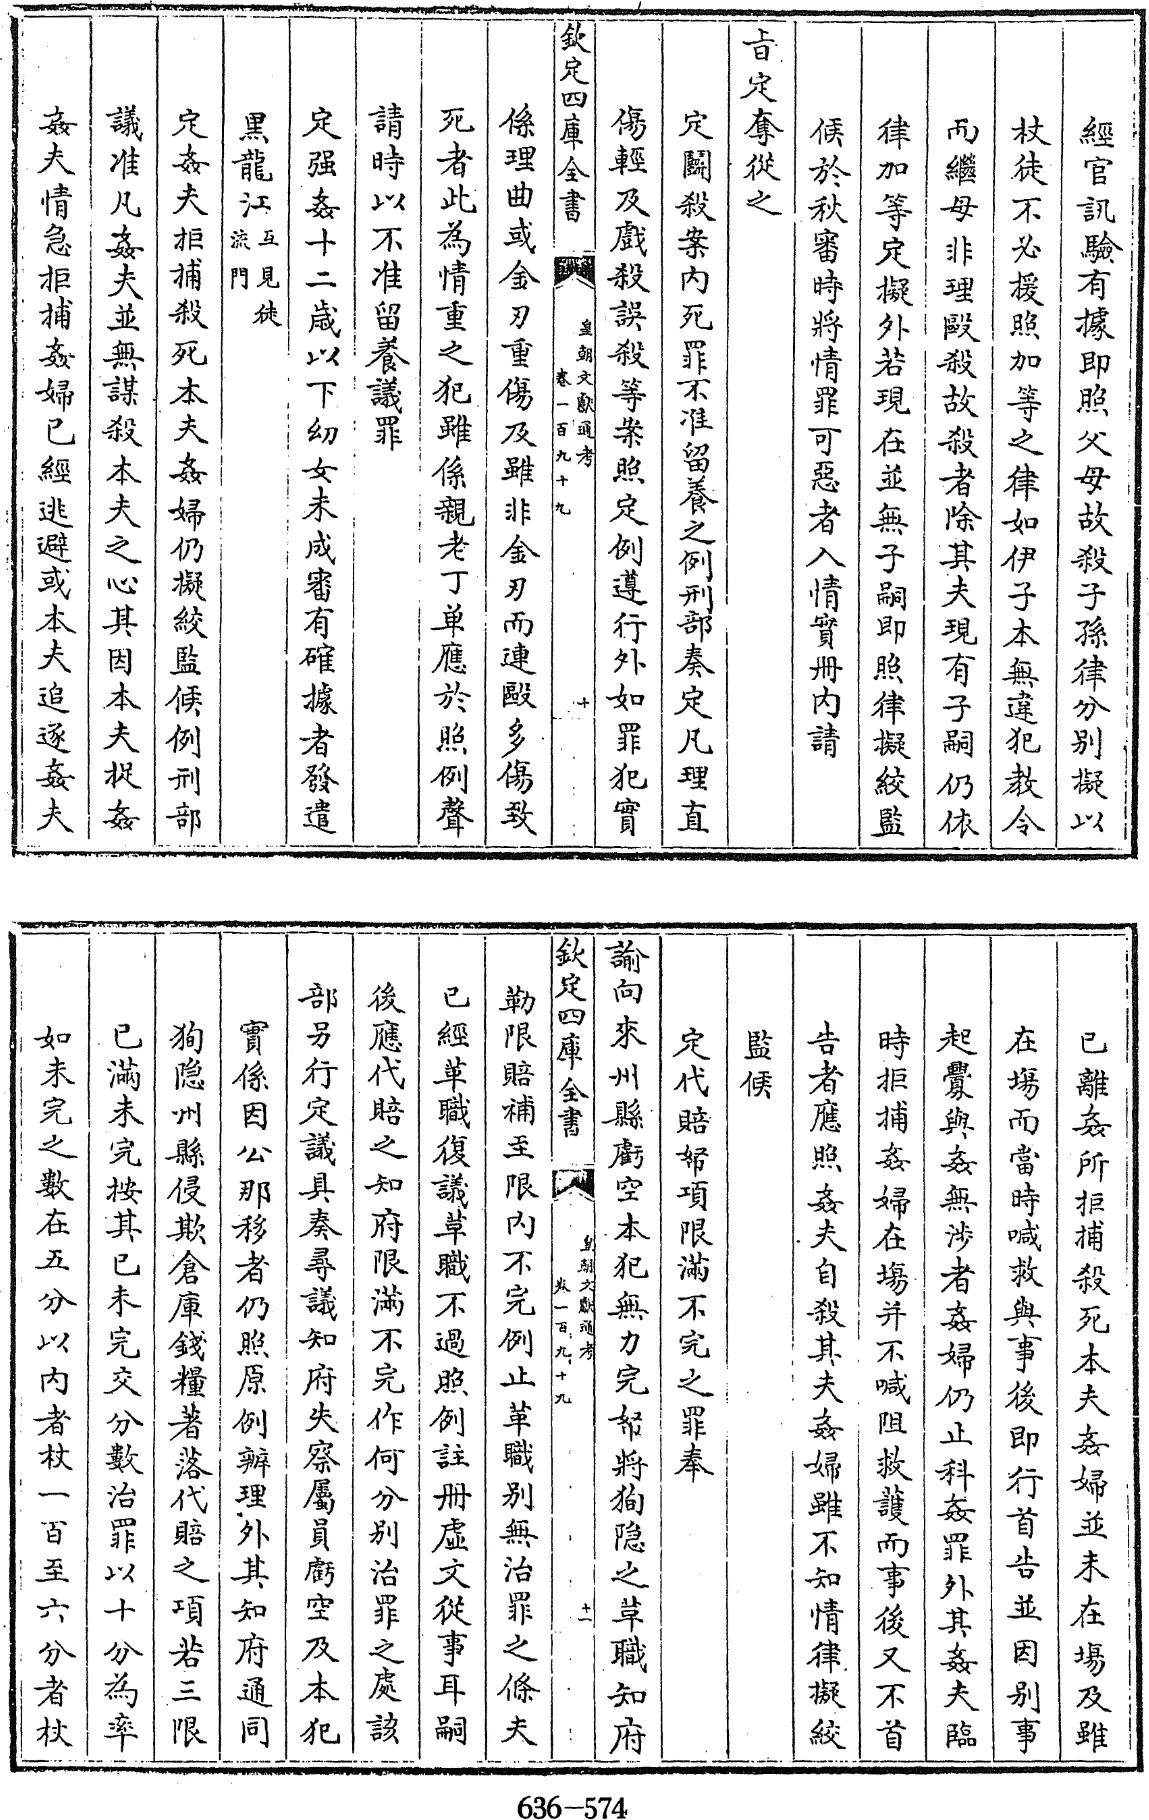 經官訊驗有據即照父母故殺子孫律分別擬以
杖徒不必援照加等之律如伊子本無違犯教令
而繼母非理毆殺故殺者除其夫現有子嗣仍依
律加等定擬外若現在並無子嗣即照律擬絞監
候於秋審時將情罪可惡者入情實冊內請
旨定奪從之
定鬬殺案內死罪不准留養之例刑部奏定凡理直
傷輕及戲殺誤殺等案照定例遵行外如罪犯實
欽定四庫全書
皇朝文獻通考
卷一百九十九
十
係理曲或金刃重傷及雖非金刃而連毆多傷致
死者此為情重之犯雖係親老丁單應於照例聲
請時以不准留養議罪
定强姦十二歲以下幼女未成審有確據者發遣
黑龍江互見徒流門
定姦夫拒捕殺死本夫姦婦仍擬絞監候例刑部
議准凡姦夫並無謀殺本夫之心其因本夫捉姦
姦夫情急拒捕姦婦已經逃避或本夫追逐姦夫
已離姦所拒捕殺死本夫姦婦並未在塲及雖
在塲而當時喊救與事後即行首告並因別事
起釁與姦無涉者姦婦仍止科姦罪外其姦夫臨
時拒捕姦婦在塲并不喊阻救護而事後又不首
告者應照姦夫自殺其夫姦婦雖不知情律擬絞
監候
定代賠帑項限滿不完之罪奉
諭向來州縣虧空本犯無力完帑將狥隐之革職知府
欽定四庫全書
皇朝文獻通考
卷一百九十九
十一
勒限賠補至限內不完例止革職別無治罪之條夫
已經革職復議革職不過照例註冊虛文從事耳嗣
後應代賠之知府限滿不完作何分別治罪之處該
部另行定議具奏尋議知府失察屬員虧空及本犯
實係因公那移者仍照原例辨理外其知府通同
狥隐州縣侵欺倉庫錢糧著落代賠之項若三限
已滿未完按其已未完交分數治罪以十分為率
如未完之數在五分以內者杖一百至六分者杖
636-574